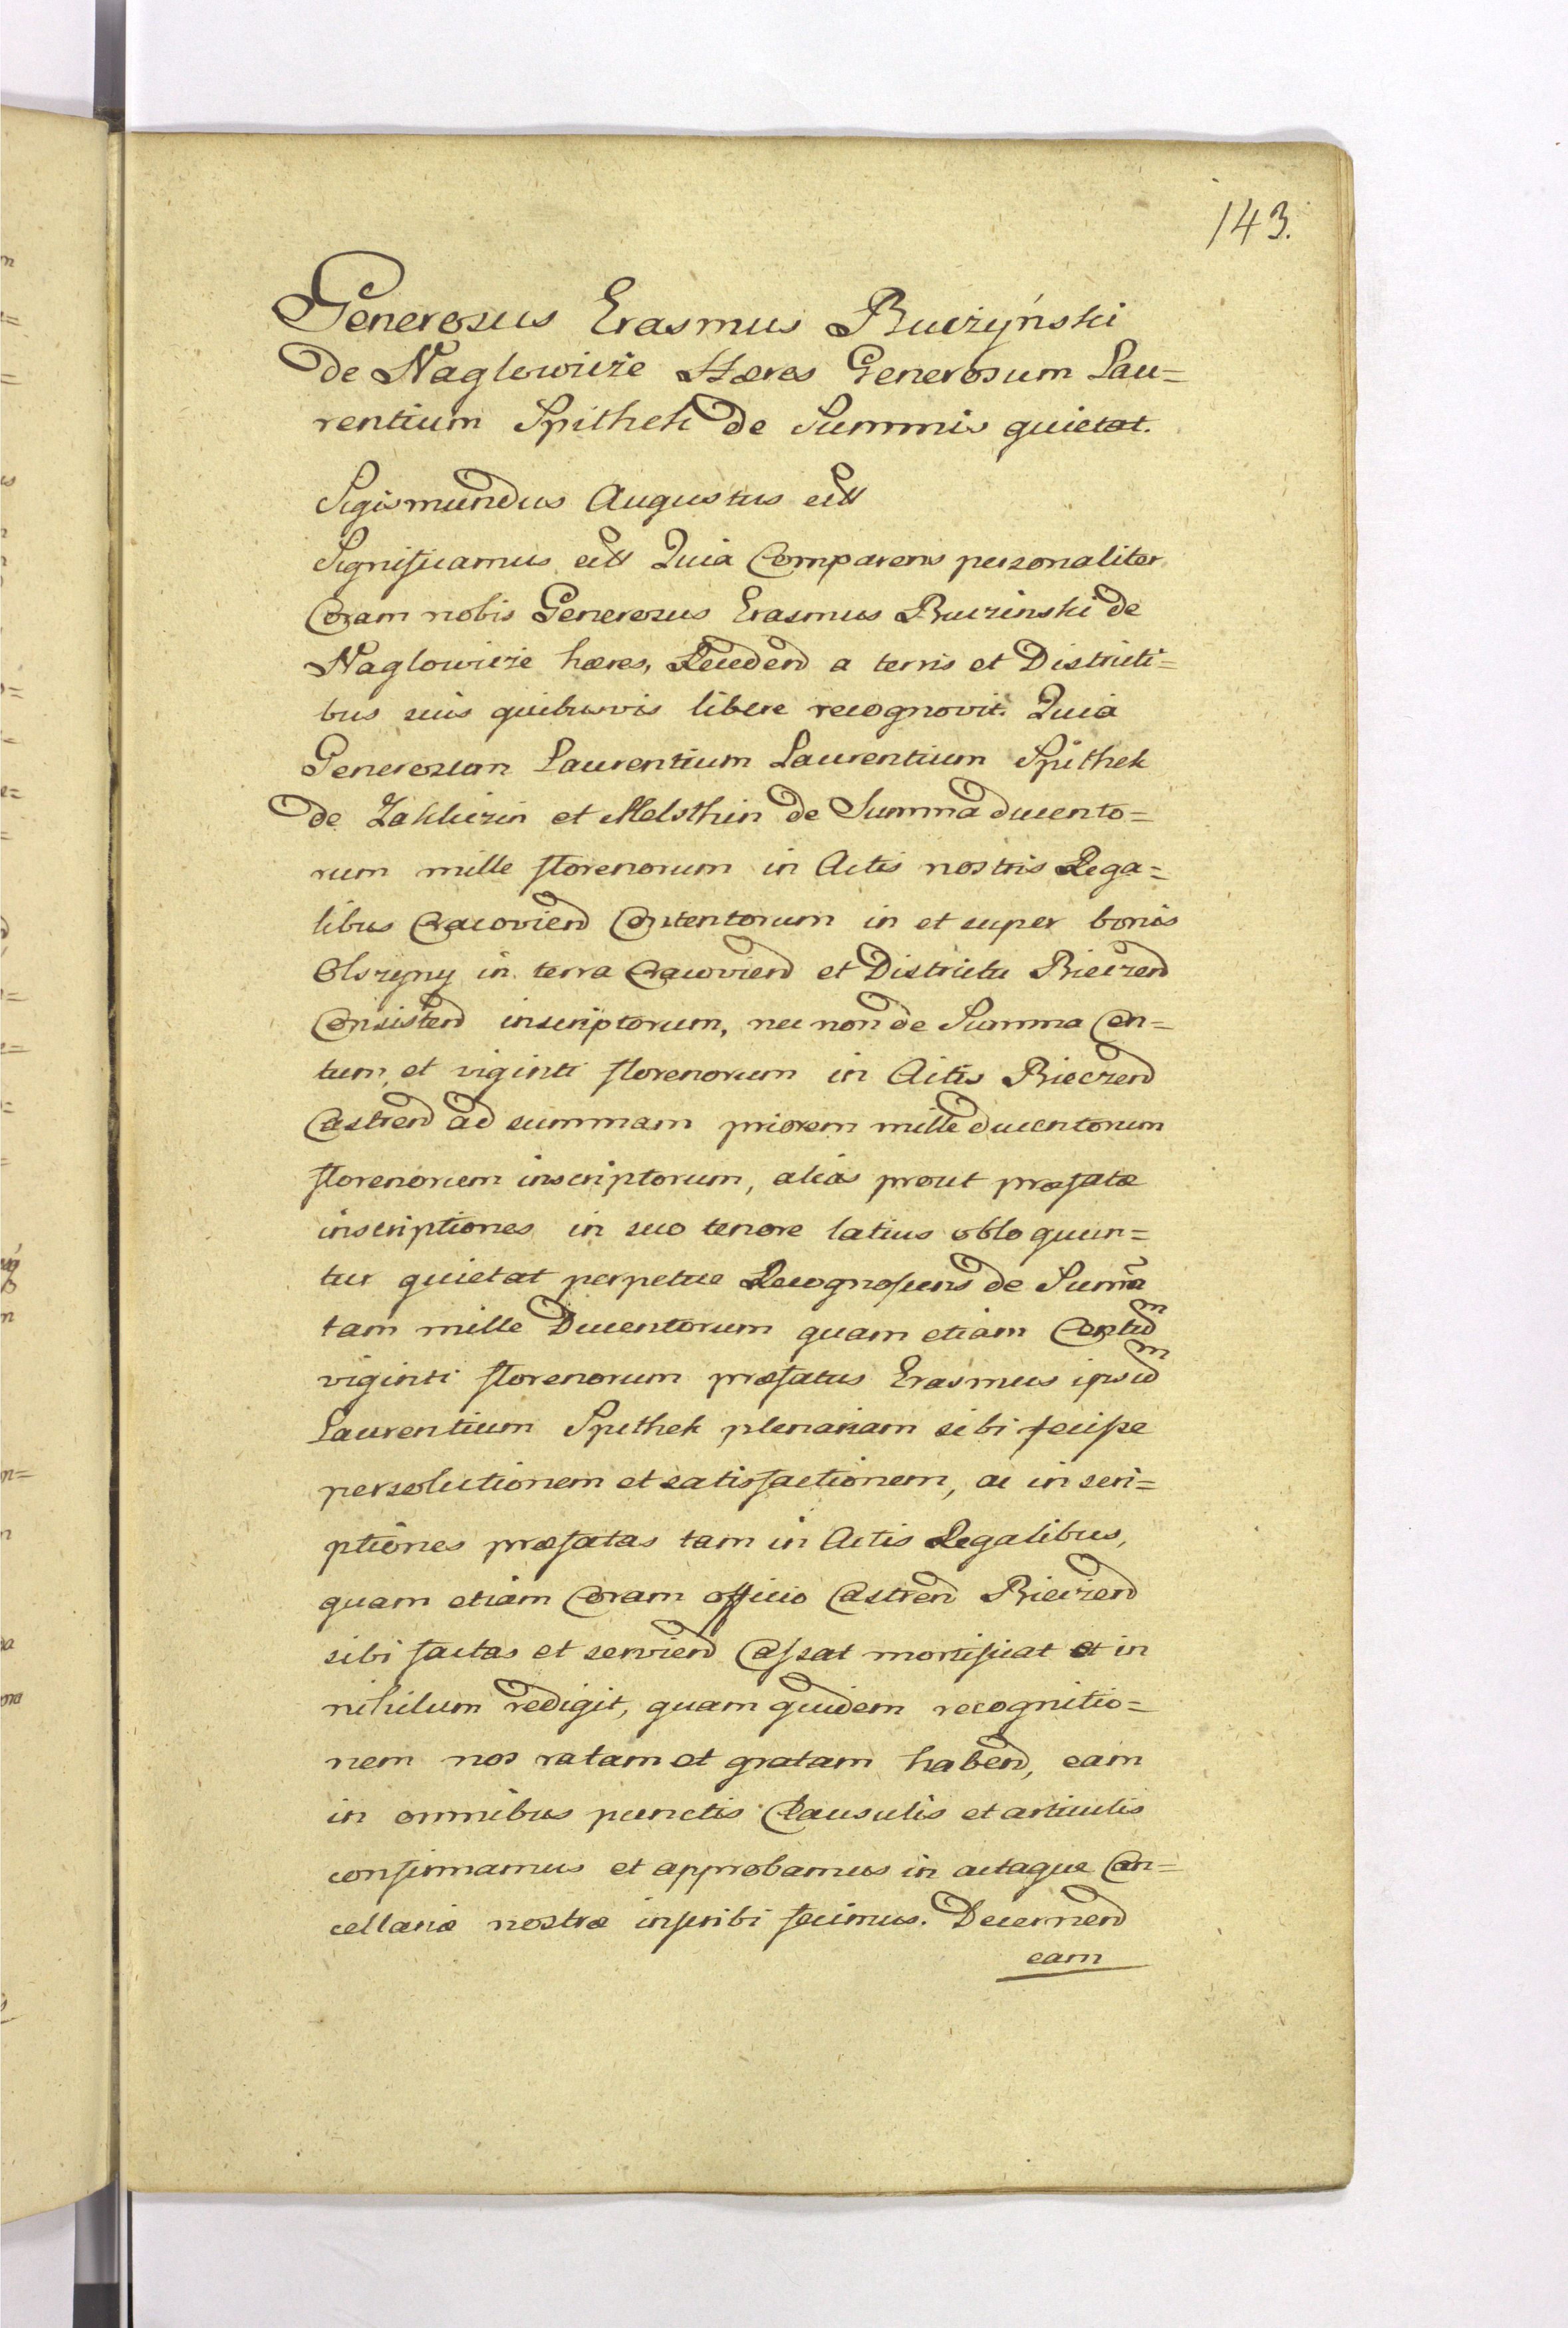 143.
Generosus Erasmus Buczyński
de Naglowicze Hæres Generosum Lau=
rentium Spithek de Summis quietat.
Sigismundus Augustus ett
Significamus ett Quia Comparens personaliter
Coram nobis Generosus Erasmus Buczinski de
Naglowicze hæres, Recedend a terris et Districti=
bus suis quibusvis libere recognovit. Quia
Generosum Laurentium Laurentium Spithek
de Zakliczin et Melsthin de Summa ducento=
rum mille florenorum in Actis nostris Rega=
libus Cracoviend Contentorum in et super bonis
Olszyny in terra Cracoviend et Districtu Bieczend
Consistend inscriptorum, nec non de Summa Cen=
tum et viginti florenorum in Actis Bieczend
Castrend ad summam priorem mille ducentorum
florenorum inscriptorum, alias prout præfatæ
inscriptiones in suo tenore latius obloquun=
tur quietat perpetue Recognoscens de Sum̃a
tam mille Ducentorum quam etiam
viginti florenorum præfatus Erasmus
Laurentium Spithek plenariam sibi fecisse
persolutionem et satisfactionem, ac in scri=
ptiones præfatas tam in Actis Regalibus,
quam etiam Coram officio Castrend Bieczend
sibi factas et serviend Cassat mortificat et in
nihilum redigit, quam quidem recognitio=
nem nos ratam et gratam habend, eam
in omnibus punctis Clausulis et articulis
confirmamus et approbamus in actaque Can=
cellariæ nostræ inscribi fecimus. Decernend
eam